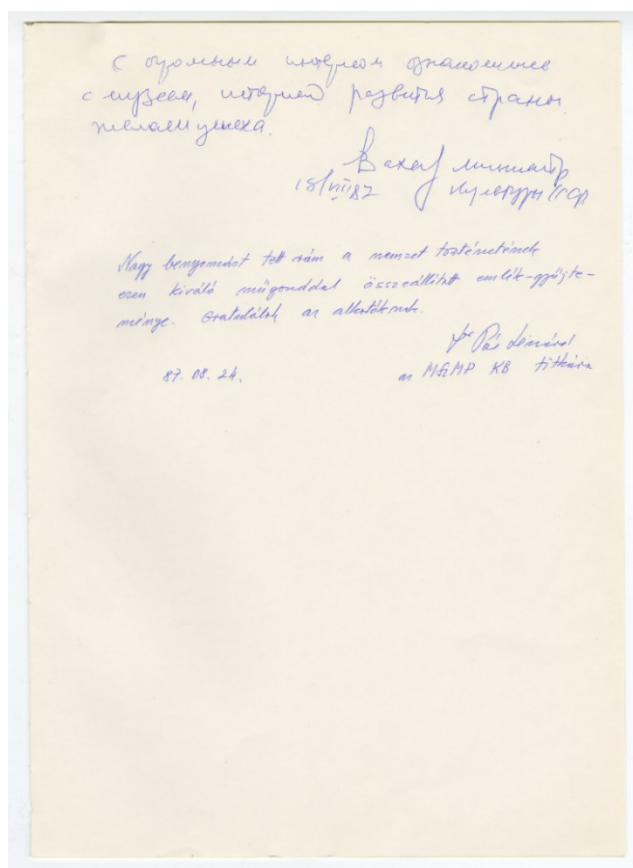 С огромным интересом ознакомился
с музеем, историей развития страны.
Желаем успеха.
министр
18/VIII 87 культуры СССР
Nagy benyomást tett rám a nemzet történetének
ezen kiváló műgonddal összeállított emlék-gyűjte-
ménye. Gratulálok az alkotóknak.
dr Pál Lénárd
87. 08. 24. az MSZMP KB titkára